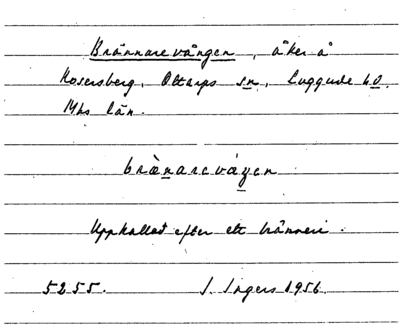 Brännarevången, åker å
Rosersberg, Ottarps sn, Luggude hd.
Mhs län.
brä̀nareváŋen
Uppkallad efter ett bränneri.
5255. I. Ingers 1956.